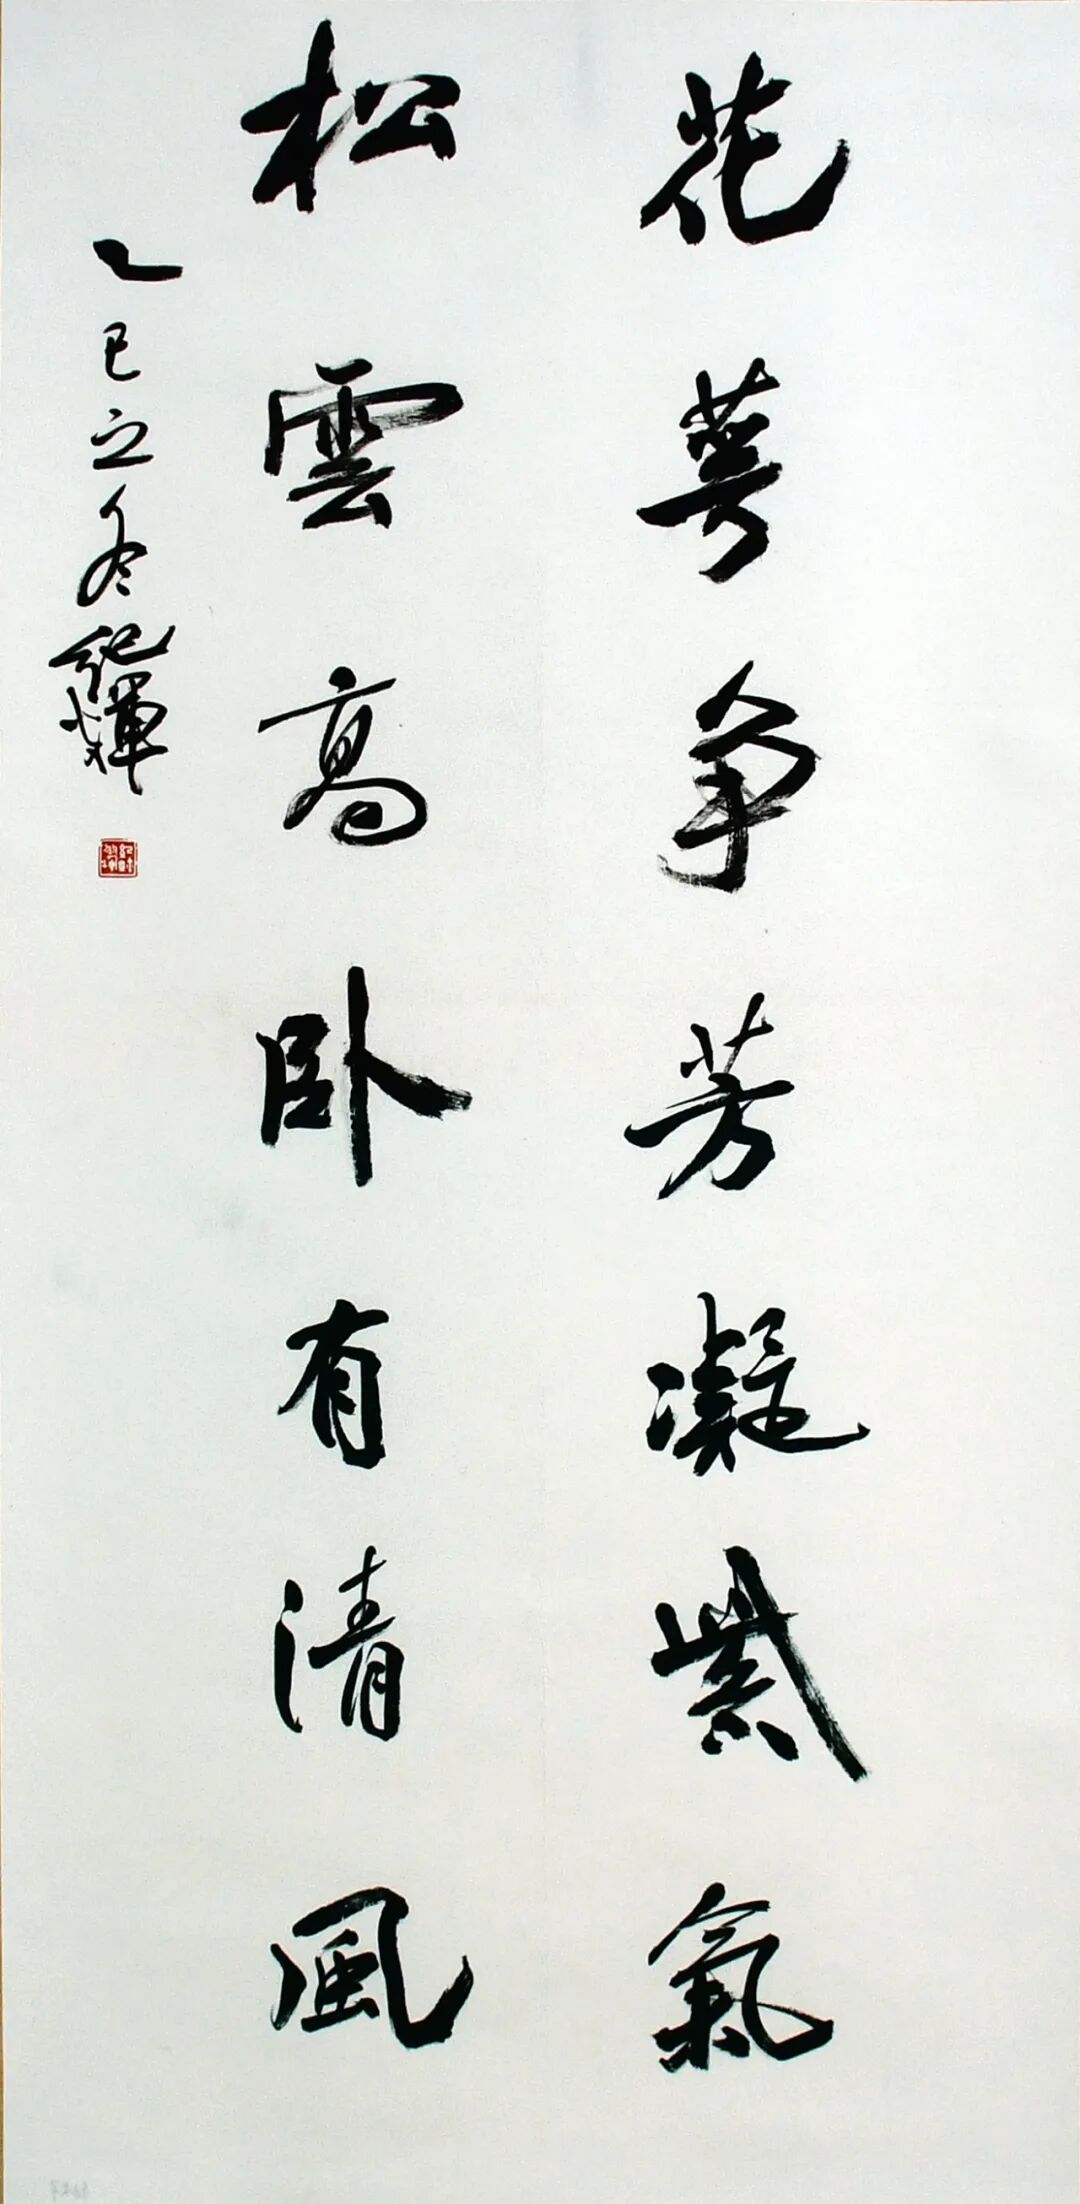 花萼争芳凝紫氣
松雲高卧有清風
乙巳立冬紀輝